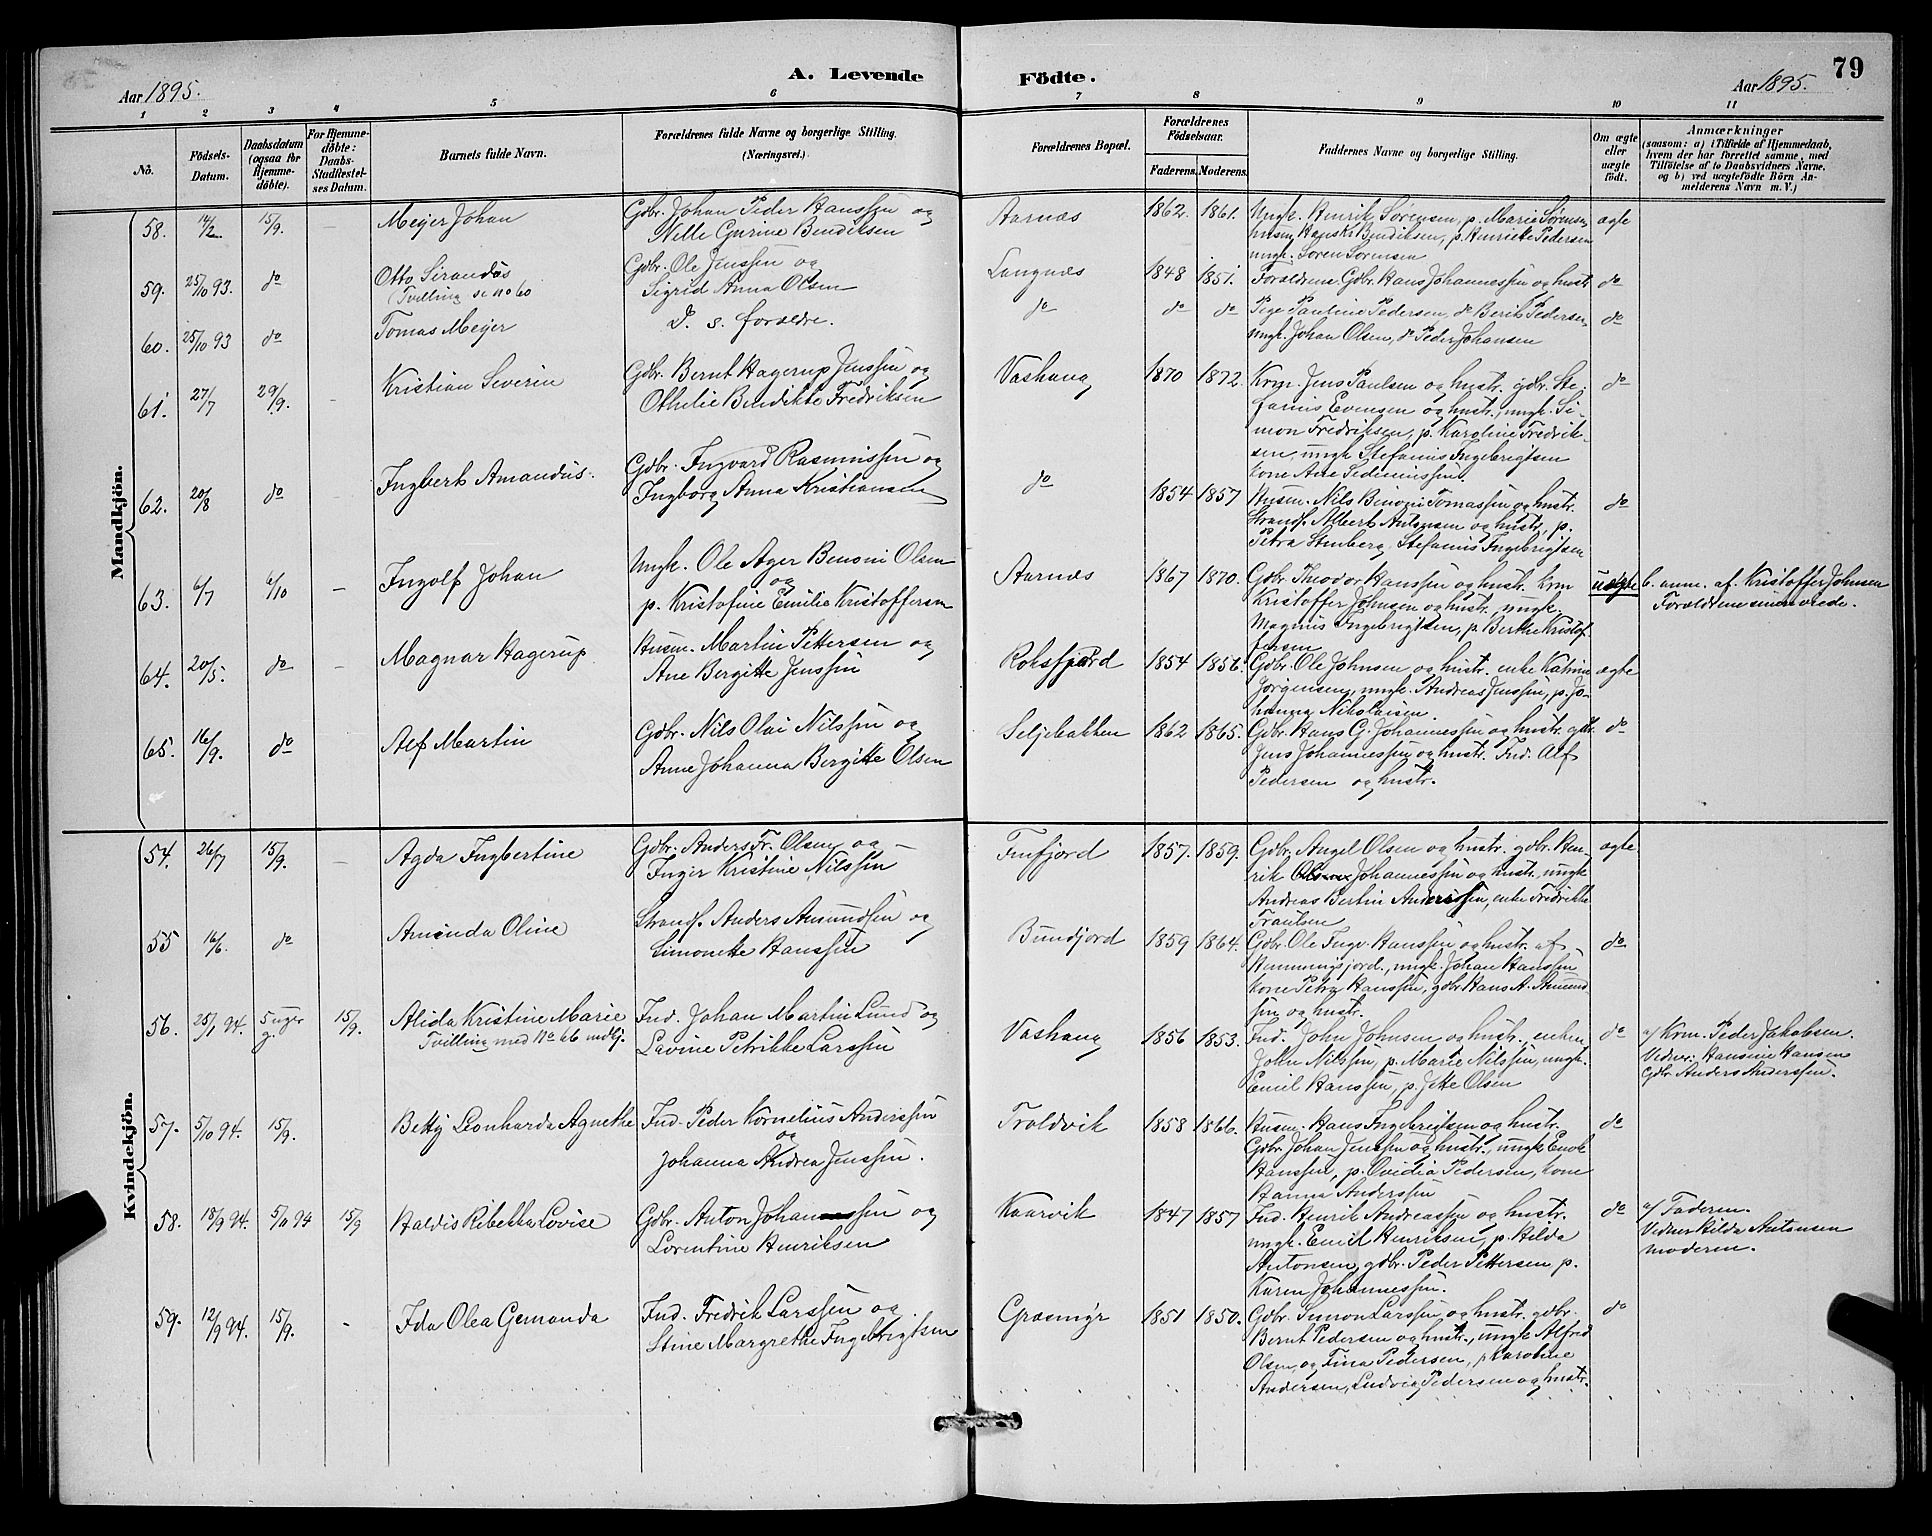 A. Levende Födte. 79
Aar 1895. Aar 1895.
1 2 3 4 5 6 7 8 9 10 11
No.
Födsels-Datum.
Daabsdatum (ogsaa for Hjemme-döbte).
For Hjemme-döbte: Daabs-Stadfestel-ses Datum.
Barnets fulde Navn.
Forældrenes fulde Navne og borgerlige Stilling. (Næringsvei.)
Forældrenes Bopæl.
Forældrenes Födselsaar.
Faderens. Moderens.
Faddernes Navne og borgerlige Stilling.
Om ægte eller uægte födt.
Anmærkninger
(saasom: a) i Tilfælde af Hjemmedaab, hvem der har forrettet samme, med Tilföielse af to Daabsvidners Navne, og b) ved uægtefödte Börn An-melderens Navn m. V.)
Mandkjön.
58. 14/2 15/9. Meyer Johan
Gdbr. Johan Peder Hanssen og
Nille Gurine Bendiksen
Aarnæs 1862. 1861.
Ungk. Henrik Sørensen, p. Marie Sørensen,
Bendiksen, p. Henriette Pedersen
ungk. Søren Sørensen
ægte
59. 25/10 93. do Otto Sirandus
(Tvilling se no 60
Gdbr. Ole Jenssen og
Sigrid Anna Olsen
Langnæs 1848 1851.
Forældrene Gdbr. Hans Johannessen og hustr. do
60. 25/10 93 do Tomas Meyer
D. s. forældre.
do do do
Pige Pauline Pedersen, do Berit Pedersen,
ungk. Johan Olsen, do Peder Johansen
do
61. 27/7 29/9. – Kristian Severin
Gdbr. Bernt Hagerup Jenssen og
Othelie Bendikte Fredriksen
Vashaug 1870 1872.
Krm. Jens Paulsen og hustr. gdbr. Ste-
fanus Evensen og hustr., ungk. Si-
mon Fredriksen, p. Karoline Fredrik-
sen ungk. Stefanus Ingebrigtsen
kone Ane
do
62. 20/8 do – Ingbert Amandus.
Gdbr. Ingvard Rasmussen og
Ingborg Anna Kristiansen
do 1854 1857
Husm. Nils Benoni Tomassen og hustr.
Strands. Albert Antonsen og hustr., p.
Petra Stenberg, Stefanus Ingebrigtsen
do
63. 6/7 6/10 – Ingolf Johan
Ungk. Ole Ager Benoni Olsen
og
p. Kristofine Emilie Kristoffersen
Aarnæs 1867 1870.
Gdbr. Theodor Hanssen og hustr. krm
Kristoffer Johnsen og hustr., ungk.
Magnus Ingebrigtsen, p. Berthe Kristof
fersen
uægte
b. anm. af Kristoffer Johnsen
Forældrene
64. 20/5. do – Magnar Hagerup
Husm. Martin Pettersen og
Ane Bergitte Jenssen
Roksfjord 1854 1856.
Gdbr. Ole Johnsen og hustr. enke Katrine
Jørgensen, ungk. Andreas Jenssen, p. Jo-
hanna Nikolaisen.
ægte
65. 16/9. do Alf Martin
Gdbr. Nils Olai Nilssen og
Anne Johanna Bergitte Olsen
Seljebakken 1862 1865.
Gdbr. Hans G. Johannessen og hustr. gdbr.
Jens Johannessen og hustr. Ind. Alf
Pedersen og hustr.
do
Kvindekjön.
54. 26/7 15/9. – Agda Ingbertine
Gdbr. Anders Fr. Olsen og –
Inger Kristine Nilssen
Finfjord 1857. 1859.
Gdbr. Angel Olsen og hustr. gdbr. Hen-
rik Johannessen og hustr. ungk
Andreas Bertin Anderssen, enke Fredrikke
Trautsen
ægte
55 16/6. do Aminda Oline
Strands. Anders Amundsen og
Simonette Hanssen
Bundjord 1859 1864.
Gdbr. Ole Ingv. Hanssen og hustr. af
Hemmingsjord., ungk. Johan Hanssen
kone Petra Hanssen, gdbr Hans A. Amund
sen og hustr.
do
56. 25/1 94. 5 uger g. 15/9. Alida Kristine Marie
Tvilling med No 66 mdkj.
Ind. Johan Martin Lund og
Lavine Petrikke Larssen
Vashaug 1856 1853.
Ind. John Johnsen og hustr., enkem
John Nilssen, p. Marie Nilssen, ungk.
Emil Hanssen, p. Jette Olsen
do
a/ Krm. Peder Jakobsen.
Vidner: Hansine Hansen
Gdbr Anders Anderssen.
57. 5/10 94. 15/9. Betty Leonharda Agnethe
Ind. Peder Kornelius Anderssen
og
Johanna Andrea Jenssen.
Troldvik 1858 1866.
Husm. Hans Ingebrigtsen og hustr.
Gdbr. Johan Jenssen og hustr., ungk Enok
Hanssen, p. Ovidia Pedersen, kone
Hanna Anderssen
do
58. 18/9 94. 5/11 94 15/9 Haldis Ribekka Lovise
Gdbr. Anton Johanssen og
Lorentine Henriksen
Kaarvik 1847 1857
Ind. Henrik Andreassen og hustr.
ungk. Emil Henriksen, p. Hilda
Antonsen, gdbr. Peder Pettersen p.
Karen Johannessen.
do
a/ Faderen.
Vidner Hilda Antonsen
moderen.
59. 12/9 94. 15/9. – Ida Olea Gemanda
Ind. Fredrik Larssen og
Stine Margrethe Ingebrigtsen
Græsmyr 1851 1850.
Gdbr. Simon Larssen og hustr. gdbr.
Bernt Pedersen og hustr., ungk Alfred
Olsen og Fina Pedersen, p Karoline
Andersen, Ludvig Pedersen og hustr.
do